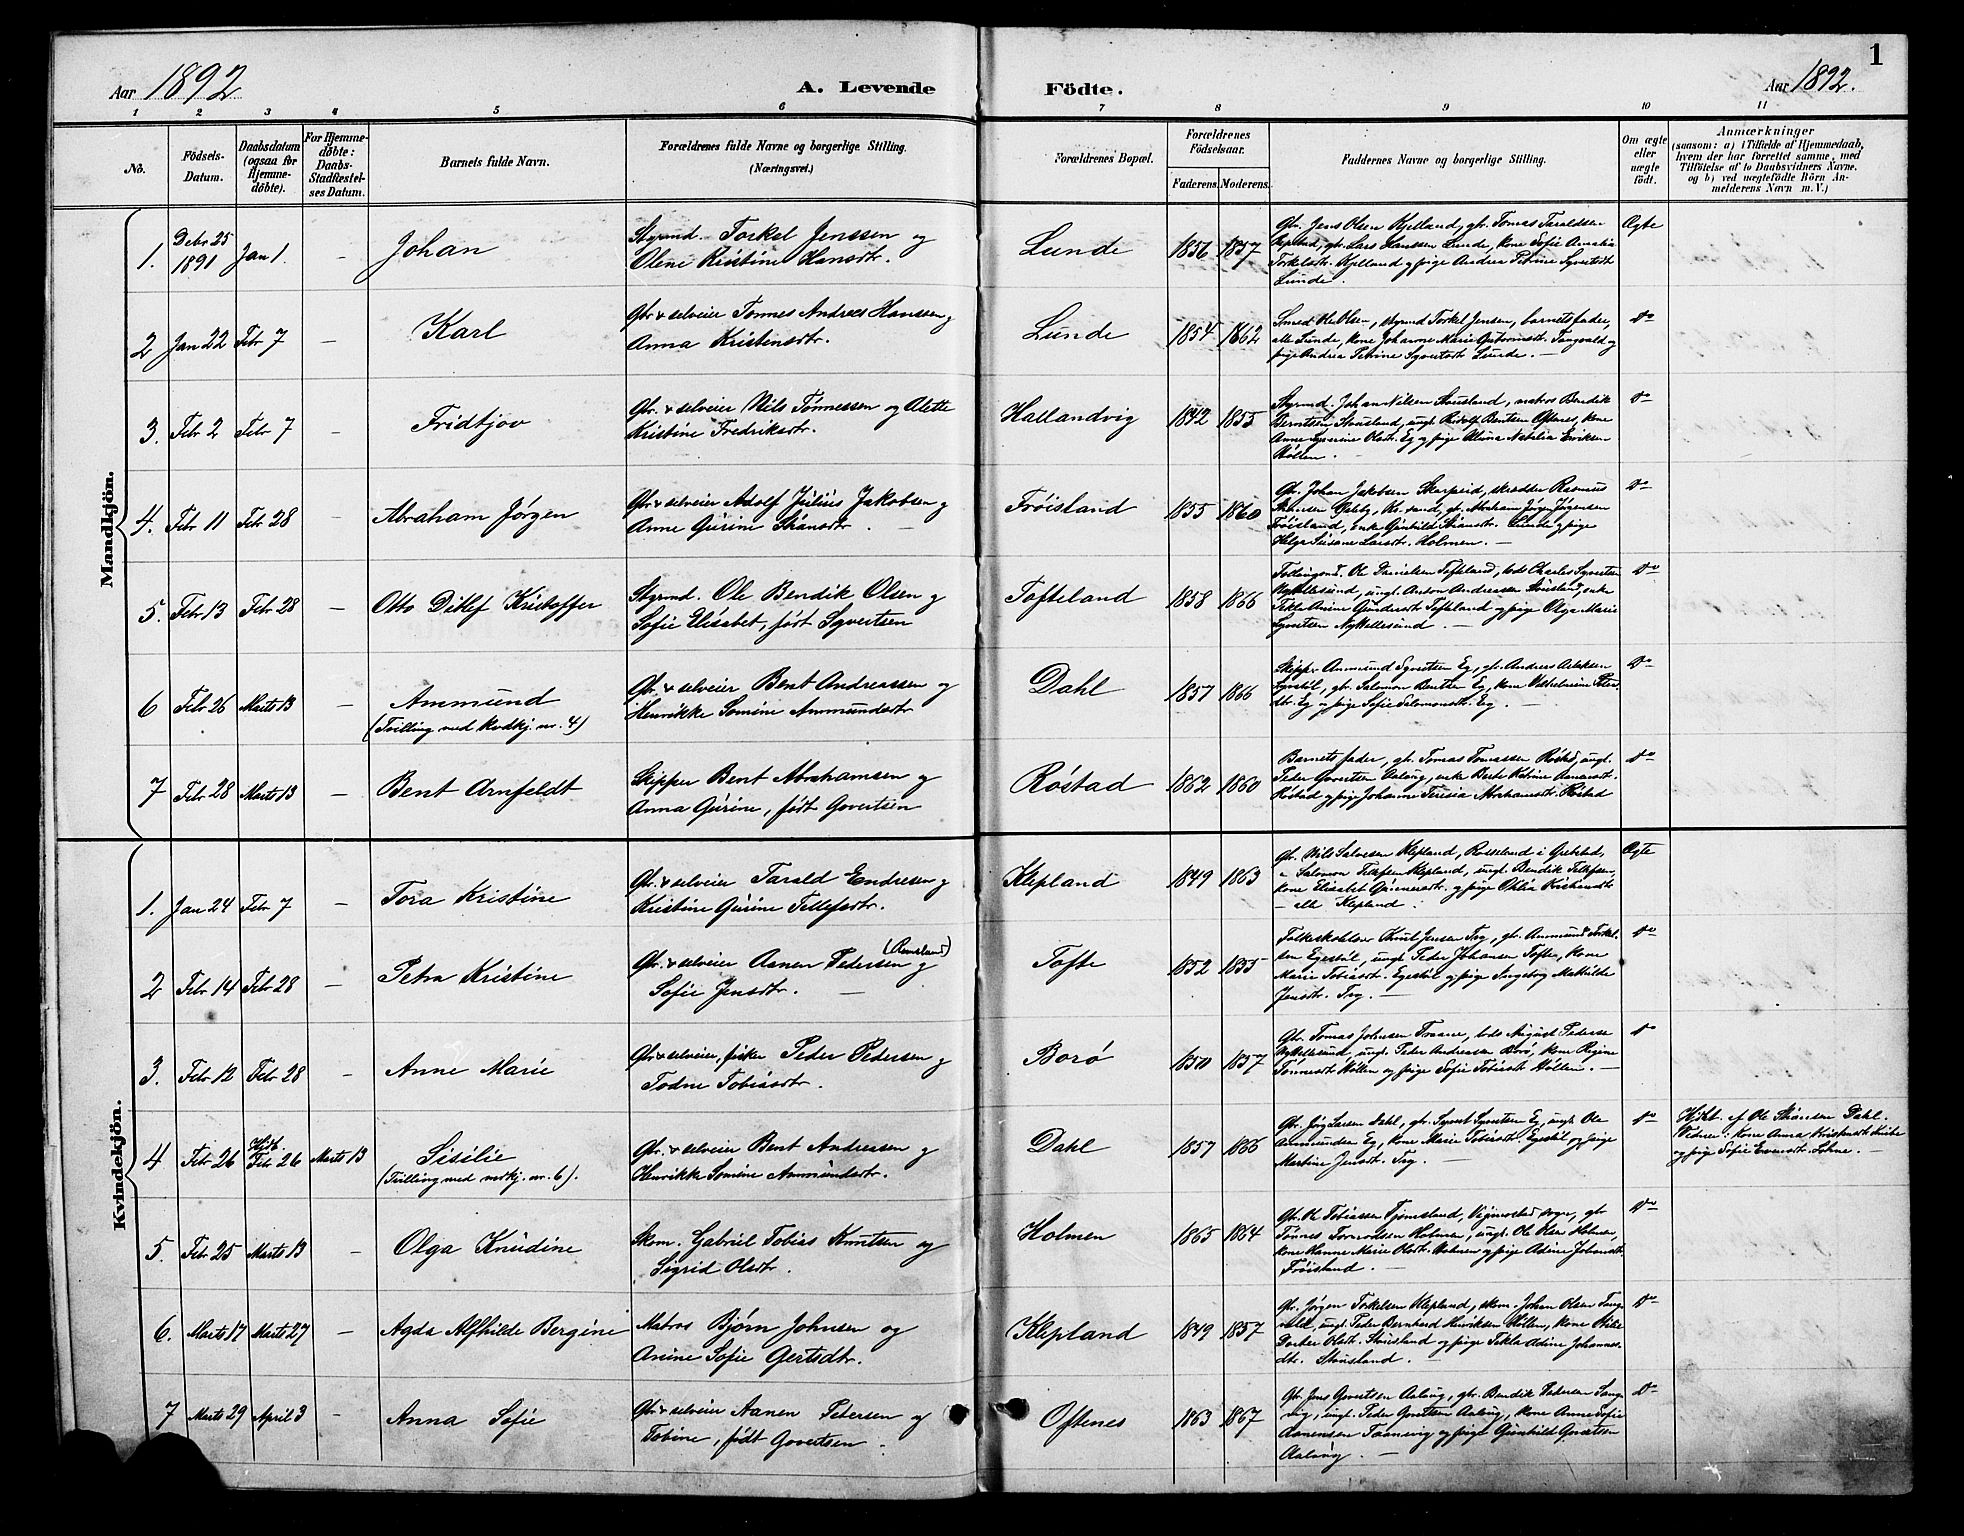 1
Aar 1892
A. Levende
Födte.
Aar 1892.
1 2 3 4 5 6 7 8 9 10 11
No.
Födsels-Datum.
Daabsdatum (ogsaa for Hjemmedöbte).
For Hjemmedöbte: Daabs-Stadfæstelses Datum.
Barnets fulde Navn.
Forældrenes fulde Navne og borgerlige Stilling.
(Næringsvei.)
Forældrenes Bopæl.
Forældrenes Födselsaar.
Faderens. Moderens.
Faddernes Navne og borgerlige Stilling.
Om ægte eller uægte födt.
Anmærkninger
(saasom: a) i Tilfælde af Hjemmedaab, hvem der har forrettet samme, med Tilföielse af to Daabsvidners Navne. og b) ved uægtefödte Börn Anmelderens Navn m. V.)
Mandkjön.
1. Debr 25 1891 Jan 1. – Johan
Styrmd. Torkel Jenssen og
Olene Kristine Hansdtr.
Lunde 1856 1857
Gbr. Jens Olsen Kjelland, gbr. Tomas Taraldsen
gbr. Lars Hanssen Lunde, kone Sofie Amalia
Torkelsdtr. Kjelland og pige Andrea Petrine Syvertsdt
Lunde.
Ægte
2 Jan 22 Febr 7 – Karl
Gbr & selveier Tønnes Andreas Hanssen og
Anna Kristensdtr.
Lunde 1854 1862
Smed Ole Olsen, styrmd Torkel Jensen, barnets fader,
alle Lunde, kone Johanne Marie Tangvald og
pige Andrea Petrine Syvertsdt Lunde. –
do
3. Febr 2 Febr 7 – Fridtjov
Gbr. & selveier Nils Tønnessen og Alette
Kristine Fredriksdtr.
Hallandvig 1842 1855
Styrmd. Johan Nilsen Stausland, matros Bendik
Berntsen Stausland, ungk. Rudolf Bentsen Oftenes, kone
Anne Olsdt. Eg og pige Alvina Natalia Eriksen
Høllen.
do
4. Febr 11 Febr 28 – Abraham Jørgen
Gbr & selveier Adolf Julius Jakobsen og
Anne Gurine Stiansdtr. –
Frøisland 1855 1860
Gbr. Johan Jakobsen Skarpeid, skrædder Rasmus
gbr. Abraham Jørgen Jørgensen
Frøisland, enke Gunhild Stiansdtr. Lunde og pige
Helga Susane Larsdtr. Holmen. –
do
5. Febr 13 Febr 28 – Otto Ditlef Kristoffer
Styrmd. Ole Bendik Olsen og
Sofie Elisabet, født Syvertsen
Tofteland 1858 1866
Ole Danielsen Tofteland, lods Charles Syvertsen
Nykkelesund, ungk. Anton Andreassen enke
Tekla Anine Gundersdt Tofteland og pige Olga Marie
Syvertsen Nykkelesund. –
do
6 Febr 26 Marts 13 – Ammund
(Tvilling med kvdkj. nr. 4)
Gbr. & selveier Bent Andreassen og
Henrikke Somine Ammundsdtr
Dahl 1857 1866
Skipper Ammund Syvertsen Eg, gbr. Andreas
gbr. Salomon Bentsen Eg, kone Vilhelmine
dtr. Eg og pige Sofie Salomonsdt. Eg.
do
7 Febr 28 Marts 13 – Bent Arnfeldt
Skipper Bent Abrahamsen og
Anna Gurine, født Govertsen
Røstad 1862 1860
Barnets fader, gbr. Tomas Tomassen Røstad, ungk.
Peder Govertsen Aalaug, enke Berte
Røstad og pige Johanne Teresia Abrahamsdt. Røstad
do
Kvindekjön.
1. Jan 24 Febr 7 – Tora Kristine
Gbr. & selveier Tarald Endresen og
Kristine Gurine Tellefsdtr.
Klepland 1849 1863
Gbr. Nils Salvesen Klepland,
Salomon Tellefsen Klepland, ungk. Bendik Tellefsen,
kone Elisabet Gunnersdt. og pige Otilia
– alle Klepland.
Ægte
2 Febr 14 Febr 28 – Petra Kristine
(Aunsland)
Gbr. & selveier Aanen Pedersen og
Sofie Jensdtr. –
Tofte 1852 1855
Folkeskolelærer Knut Jensen Try, gbr. Ammund Torkelsen
Egestøl, ungk. Peder Johansen Tofte, kone
Marie Tobiasdt. Egestøl og pige Ingeborg Mathilde
Jensdt. Try. –
do
3. Febr 12 Febr 28 – Anne Marie
Gbr & selveier, fisker Peder Pedersen og
Todne Tobiasdtr.
Borø 1850 1857
Gbr. Tomas Johnsen Traane, lods August Pederse
Nykkelesund, ungk. Peder Andreassen Borø, kone Regine
Tønnesdt Høllen og pige Sofie Tobiasdt Høllen. –
do
4 Febr 26 Hjdbt. Febr 26 Marts 13 Sisilie
(Tvilling med mdkj. nr. 6).
Gbr. & selveier Bent Andreassen og
Henrikke Somine Ammundsdtr.
Dahl 1857 1866
Gbr. Jørg Larsen Dahl, gbr. Syvert Syvertsen Eg, ungk. Ole
Ammundsen Eg, kone Marie Tobiasdt. Egestøl og pige
Martine Jensdt. Try.
do
Hjdbt. af Ole Stiansen Dahl.
Vidner: Kone Anna Kristensdt
og pige Sofie Evensdt. Lohne. –
5. Febr 25 Marts 13 – Olga Knudine
Skom. Gabriel Tobias Knutsen og
Sigrid Olsdtr.
Holmen 1865 1864
Gbr. Ole Tobiassen Tjomsland, Vigmostad sogn, gbr
Tønnes Holmen, ungk. Ole Olsen Holmen,
kone Hanne Marie Olsdt. Holmen og pige Adine
Frøisland. –
do
6. Marts 17 Marts 27 – Agda Alfhilde Bergine
Matros Bjørn Johnsen og
Anine Sofie Gertsdtr.
Klepland 1849 1857
Gbr. Jørgen Torkelsen Klepland, skom. Johan Olsen Tangvald,
ungk. Peder Bernhard Henriksen Høllen, kone
Dorthe Olsdt. Stausland og pige Tekla Adine Johannesdtr.
Stausland. –
do
7 Marts 29 April 3 – Anna Sofie
Gbr & selveier Aanen Petersen og
Tobine, født Govertsen.
Oftenes 1863 1867
Gbr. Jens Govertsen Aalaug, gbr. Bendik Pedersen
ungk. Peder Govertsen Aalaug, kone Anne Sofie
Aanensen Traanevig og pige Gunhild Govertsen
Aalaug. –
do